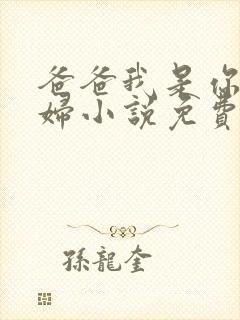 爸爸我是你
婦小說免費
孫龍奎